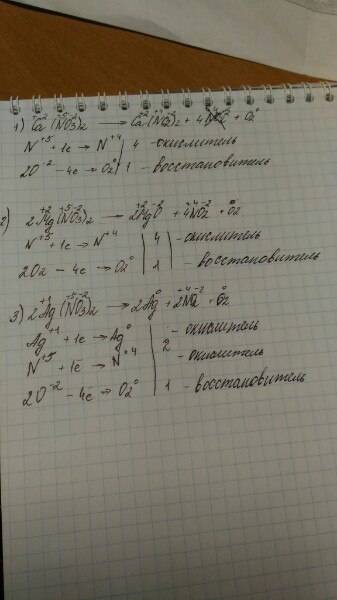 1) Ca⁺²(N⁺⁵O₃⁻²)₂ → Ca⁺²(N⁺⁴O₂⁻²)₂ + 4 + O₂⁰
N⁺⁵ + 1e → N⁺⁴ | 4 - окислитель
2O⁻² - 4e → O₂⁰ | 1 - восстановитель
2) 2Mg⁺²(N⁺⁵O₃⁻²)₂ → 2Mg⁺²O⁻² + 4N⁺⁴O₂⁻² + O₂⁰
N⁺⁵ + 1e → N⁺⁴ | 4 - окислитель
2O₂ - 4e → O₂⁰ | 1 - восстановитель
3) 2Ag⁺¹(N⁺⁵O₃⁻²)₂ → 2Ag⁰ + 2N⁺⁴O₂⁻² + O₂⁰
Ag⁺¹ + 1e → Ag⁰ | 2 - окислитель
N⁺⁵ + 1e → N⁺⁴ | - окислитель
2O⁻² - 4e → O₂⁰ | 1 - восстановитель